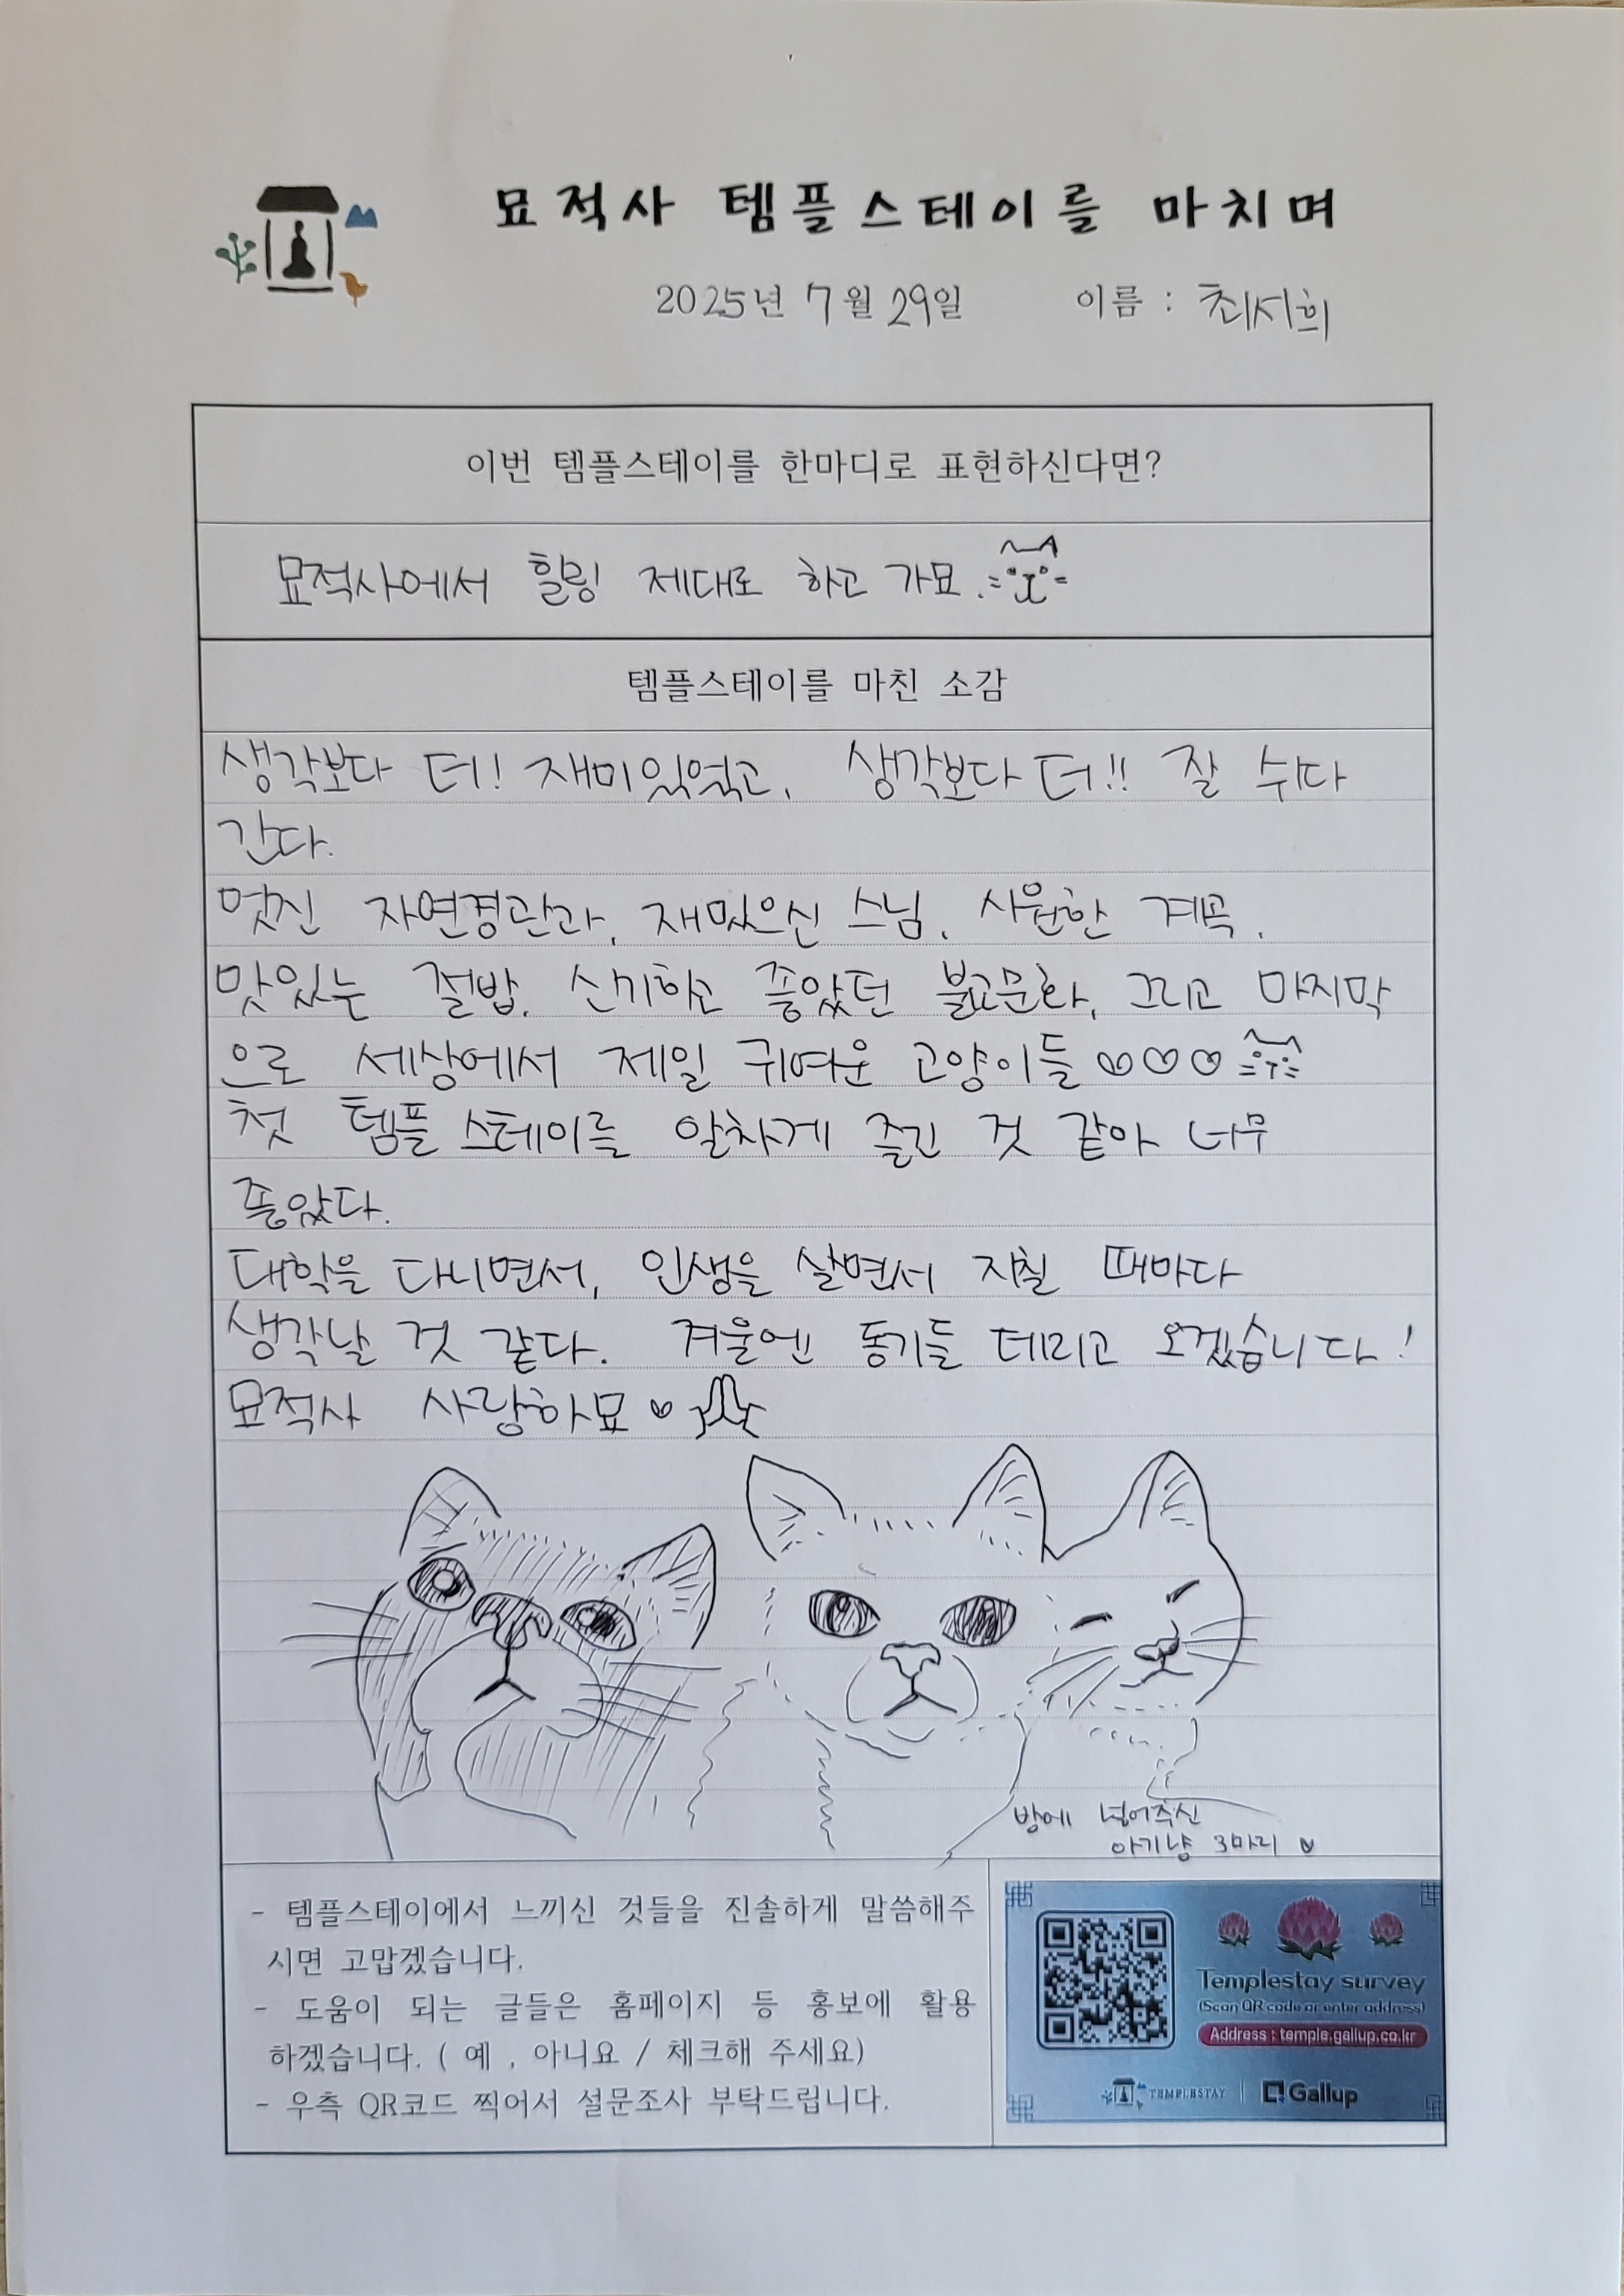 묘적사 템플스테이를 마치며
2025년 7월 29일 이름 : 최서희
이번 템플스테이를 한마디로 표현하신다면?
묘적사에서 힐링 제대로 하고 가묘.
템플스테이를 마친 소감
생각보다 더! 재미있었고, 생각보다 더!! 잘 쉬다
간다.
멋진 자연경관과, 재밌으신 스님, 시원한 계곡,
맛있는 절밥, 신기하고 좋았던 불교문화, 그리고 마지막
으로 세상에서 제일 귀여운 고양이들 ♡♡♡
첫 템플스테이를 알차게 즐긴 것 같아 너무
좋았다.
대학을 다니면서, 인생을 살면서 지칠 때마다
생각날 것 같다. 겨울엔 동기들 데리고 오겠습니다!
묘적사 사랑하묘♡
방에 넣어주신
아기냥 3마리 ♡
- 템플스테이에서 느끼신 것들을 진솔하게 말씀해주
시면 고맙겠습니다.
- 도움이 되는 글들은 홈페이지 등 홍보에 활용
하겠습니다. ( 예 , 아니요 / 체크해 주세요)
- 우측 QR코드 찍어서 설문조사 부탁드립니다.
Templestay survey
(Scan QR code or enter address)
Address : temple.gallup.co.kr
TEMPLESTAY Gallup